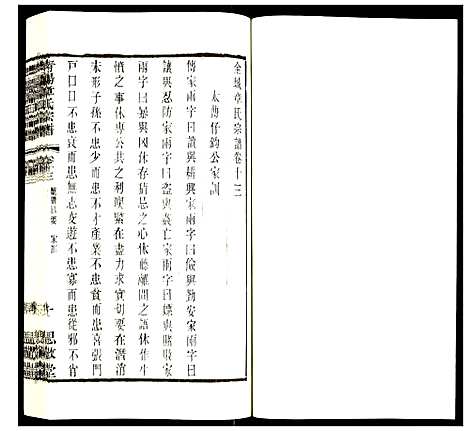 全城章氏宗譜卷十三
太傅仔鈞公家訓
傳家兩字曰讀與耕興家兩字曰儉與勤安家兩字曰
讓與忍防家兩字曰盜與姦亡家兩字曰嫖與賭敗家
兩字曰暴與凶休存猜忌之心休聽離間之語休作生
憤之事休專公共之利喫緊在盡力求實切要在潛消
未形子孫不患少而患不才產業不患貧而患喜張門
戶口不患衰而患無志交遊不患寡而患從邪不肖
章氏宗譜
卷三
家訓